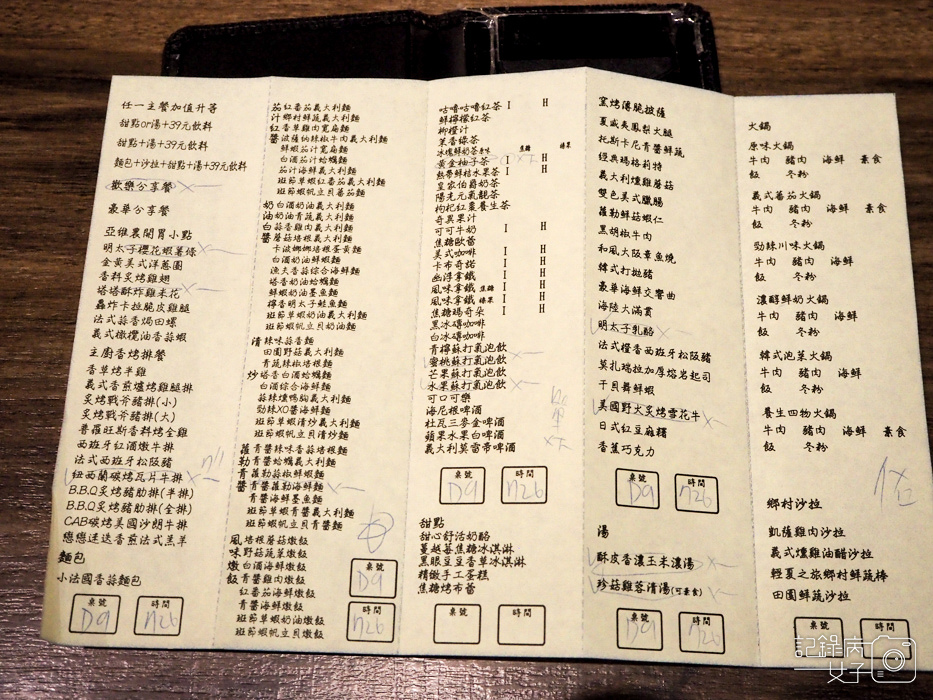 任一主餐加值升等
甜點or湯+39元飲料
甜點+湯+39元飲料
麵包+沙拉+甜點+湯+39元飲料
歡樂分享餐
豪華分享餐
亞維農開胃小點
明太子櫻花蝦薯條
金黃美式洋蔥圈
香料炙烤雞翅
塔塔酥炸雞米花
轟炸卡拉脆皮雞腿
法式蒜香焗田螺
義式橄欖油香蒜蝦
主廚香烤排餐
香草烤半雞
義式香煎爐烤雞腿排
炙烤戰斧豬排(小)
炙烤戰斧豬排(大)
普羅旺斯香料烤全雞
西班牙紅酒燉牛排
法式西班牙松阪豬
紐西蘭碳烤瓦片牛排
B.B.Q炙烤豬肋排(半排)
B.B.Q炙烤豬肋排(全排)
CAB碳烤美國沙朗牛排
戀戀迷迭香煎法式羔羊
麵包
小法國香蒜麵包
桌號 時間
D9 1126
茄紅番茄義大利麵
汁鄉村鮮蔬義大利麵
紅香草雞肉寬扁麵
醬波薩納辣椒牛肉義大利麵
鮮蝦茄汁寬扁麵
白酒茄汁蛤蠣麵
茄汁海鮮義大利麵
班節草蝦紅番茄義大利麵
班節蝦帆立貝蕃茄麵
奶白酒奶油義大利麵
油奶油青蔬義大利麵
白蒜香雞肉義大利麵
醬蘑菇培根義大利麵
卡波娜娜培根蛋黃麵
白酒奶油鮮蝦麵
漁夫香蒜綜合海鮮麵
塔香奶油蛤蠣麵
鮮蝦奶油墨魚麵
檸香明太子鮭魚麵
班節草蝦奶油義大利麵
班節蝦帆立貝奶油麵
清辣味蒜香麵
田園野菇義大利麵
青蔬辣椒培根麵
炒塔香白酒蛤蠣麵
白酒綜合海鮮麵
蒜辣煙鴨胸義大利麵
勁辣XO醬海鮮麵
班節草蝦清炒義大利麵
班節蝦帆立貝清炒麵
蘿青醬辣味香蒜培根麵
勒青醬蛤蠣義大利麵
青蘿勒蒜椒鮮蝦麵
醬青醬蘿勒海鮮麵
青醬海鮮墨魚麵
班節草蝦青醬義大利麵
班節蝦帆立貝青醬麵
風培根蘑菇燉飯
味野菇蔬菜燉飯
燉白酒海鮮燉飯
飯青醬雞肉燉飯
紅番茄海鮮燉飯
青醬海鮮燉飯
班節草蝦奶油燉飯
班節蝦帆立貝燉飯
桌號
D9
時間
1126
咕嚕咕嚕紅茶 I H
鮮檸檬紅茶
柳橙汁
茉香綠茶
冰塊鮮奶茶原味 焦糖 榛果
黃金柚子茶 I H
熱帶鮮桔水果茶 I H
皇家伯爵奶茶
陽光元氣靚茶
枸杞紅棗養生茶
奇異果汁
可可牛奶 I H
焦糖歐蕾
美式咖啡 I H
卡布奇諾 I H
幽浮拿鐵 I H
風味拿鐵 焦糖 I H
風味拿鐵 榛果 I H
焦糖瑪奇朵 I H
黑冰磚咖啡
白冰磚咖啡
青檸蘇打氣泡飲
蜜桃蘇打氣泡飲
芒果蘇打氣泡飲
水果蘇打氣泡飲
可口可樂
海尼根啤酒
杜瓦三麥金啤酒
蘋果水果白啤酒
義大利莫雷帝啤酒
桌號 時間
D9 1126
甜點
甜心舒活奶酪
蔓越莓焦糖冰淇淋
黑眼豆豆香草冰淇淋
精緻手工蛋糕
焦糖烤布蕾
桌號 時間
窯烤薄脆披薩
夏威夷鳳梨火腿
托斯卡尼青醬鮮蔬
經典瑪格莉特
義大利燻雞蘑菇
雙色美式臘腸
蘿勒鮮菇蝦仁
黑胡椒牛肉
和風大阪章魚燒
韓式打拋豬
豪華海鮮交響曲
海陸大滿貫
明太子乳酪
法式橙香西班牙松阪豬
莫扎瑞拉加厚熔岩起司
干貝舞鮮蝦
美國野火炙烤雪花牛
日式紅豆麻糬
香蕉巧克力
桌號 時間
D9 1126
湯
酥皮香濃玉米濃湯
珍菇雞蓉清湯(可素食)
桌號 時間
D9 1126
火鍋
原味火鍋
牛肉 豬肉 海鮮 素食
飯 冬粉
義式蕃茄火鍋
牛肉 豬肉 海鮮 素食
飯 冬粉
勁辣川味火鍋
牛肉 豬肉 海鮮
飯 冬粉
濃醇鮮奶火鍋
牛肉 豬肉 海鮮
飯 冬粉
韓式泡菜火鍋
牛肉 豬肉 海鮮
飯 冬粉
養生四物火鍋
牛肉 豬肉 海鮮 素食
飯 冬粉
鄉村沙拉
凱薩雞肉沙拉
義式燻雞油醋沙拉
輕夏之旅鄉村鮮蔬棒
田園鮮蔬沙拉
桌號 時間
記錄內
女子